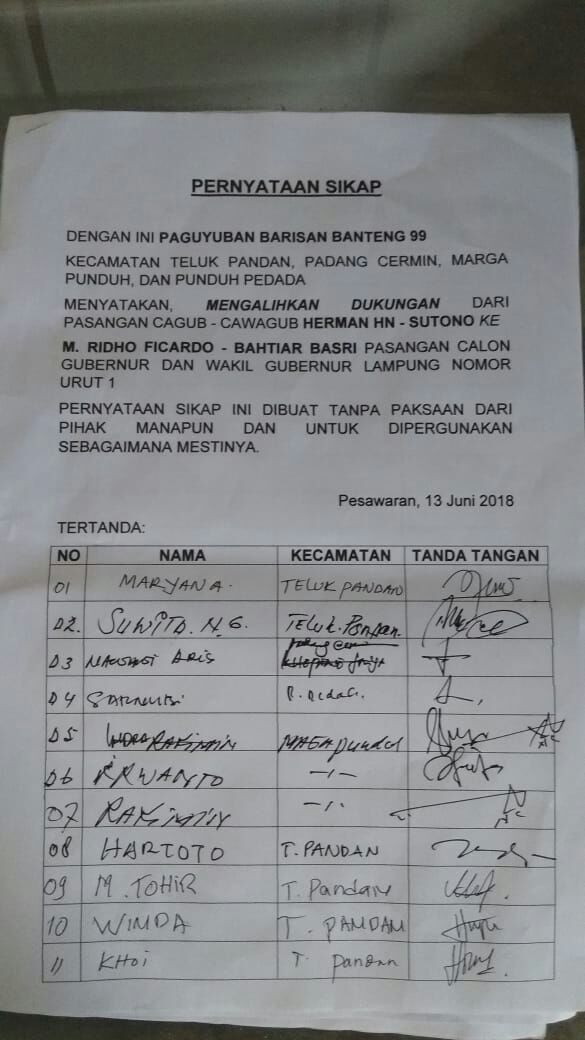 PERNYATAAN SIKAP
DENGAN INI PAGUYUBAN BARISAN BANTENG 99
KECAMATAN TELUK PANDAN, PADANG CERMIN, MARGA
PUNDUH, DAN PUNDUH PEDADA
MENYATAKAN, MENGALIHKAN DUKUNGAN DARI
PASANGAN CAGUB - CAWAGUB HERMAN HN - SUTONO KE
M. RIDHO FICARDO - BAHTIAR BASRI PASANGAN CALON
GUBERNUR DAN WAKIL GUBERNUR LAMPUNG NOMOR
URUT 1
PERNYATAAN SIKAP INI DIBUAT TANPA PAKSAAN DARI
PIHAK MANAPUN DAN UNTUK DIPERGUNAKAN
SEBAGAIMANA MESTINYA.
Pesawaran, 13 Juni 2018
TERTANDA:
NO NAMA KECAMATAN TANDA TANGAN
01 MARYANA. TELUK PANDAN
02. Teluk. Pandan.
03 ARIS
04
05 RAKIMIN
06 IRWANTO -"-
07 RAKIMIN -"-
08 HARTOTO T. PANDAN
09 M. TOHIR T. Pandan
10 WINDA T. PANDAN
11 KHOi T. Pandan